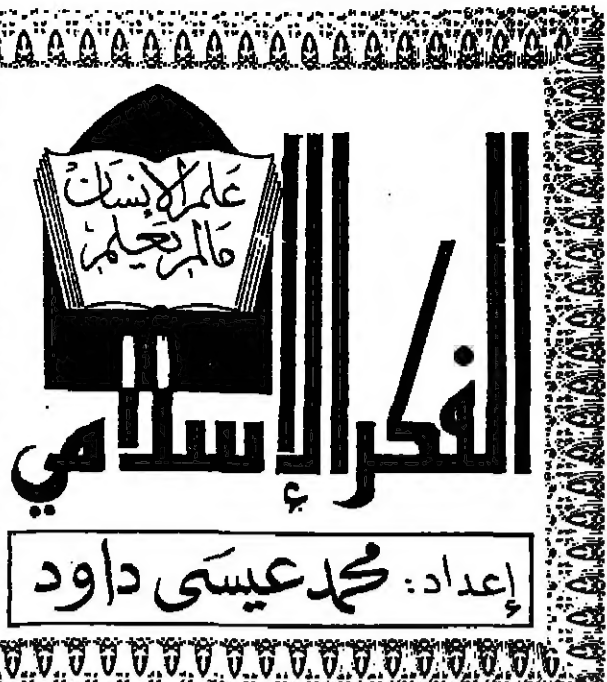 عَلَّمَ الْإِنسَانَ
مَا لَمْ يَعْلَمْ
الفكر الإسلامي
إعداد: محمد عيسَى داود